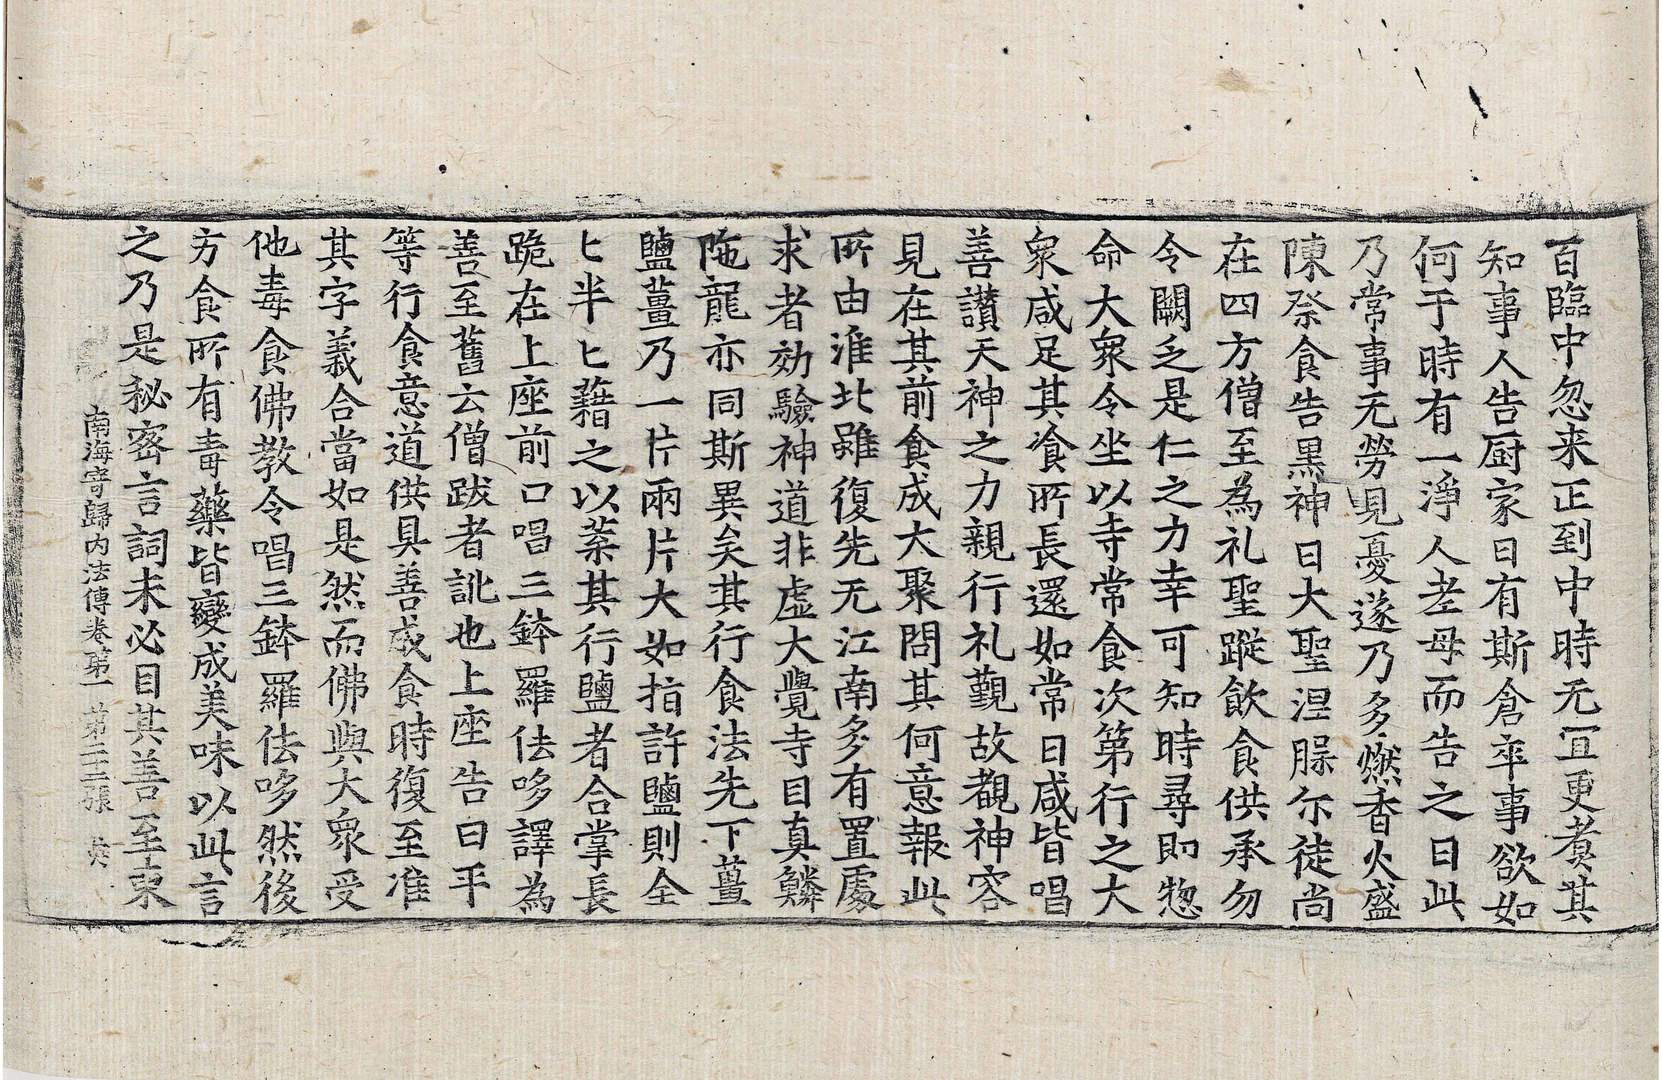 百臨中忽来正到中時无冝更煮其
知事人告厨家曰有斯倉卒事欲如
何于時有一淨人老母而告之曰此
乃常事无勞見憂遂乃多燃香火盛
陳祭食告黒神曰大聖涅脲尓徒尚
在四方僧至為礼聖蹤飲食供承勿
令闕乏是仁之力幸可知時尋即惣
命大衆令坐以寺常食次第行之大
衆咸足其飡所長還如常日咸皆唱
善讃天神之力親行礼觀故覩神容
見在其前食成大聚問其何意報此
所由淮北雖復先无江南多有置處
求者効驗神道非虚大覺寺目真鱗
陁龍亦同斯異矣其行食法先下薑
鹽薑乃一片兩片大如指許鹽則全
匕半匕藉之以葉其行鹽者合掌長
跪在上座前口唱三鉢羅佉哆譯為
善至舊云僧跋者訛也上座告曰平
等行食意道供具善成食時復至准
其字義合當如是然而佛與大衆受
他毒食佛教令唱三鉢羅佉哆然後
方食所有毒藥皆變成美味以此言
之乃是秘密言詞未必目其善至東
南海寄歸内法傳卷第一 第二十二張